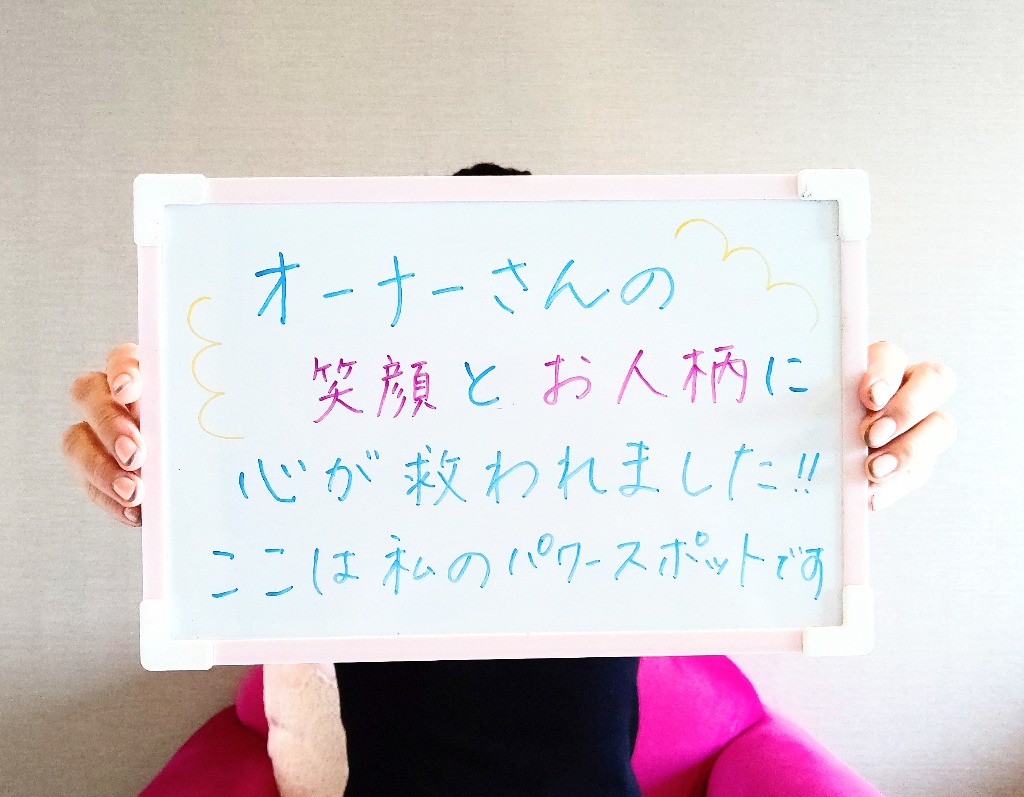 オーナーさんの
笑顔とお人柄に
心が救われました!!
ここは私のパワースポットです